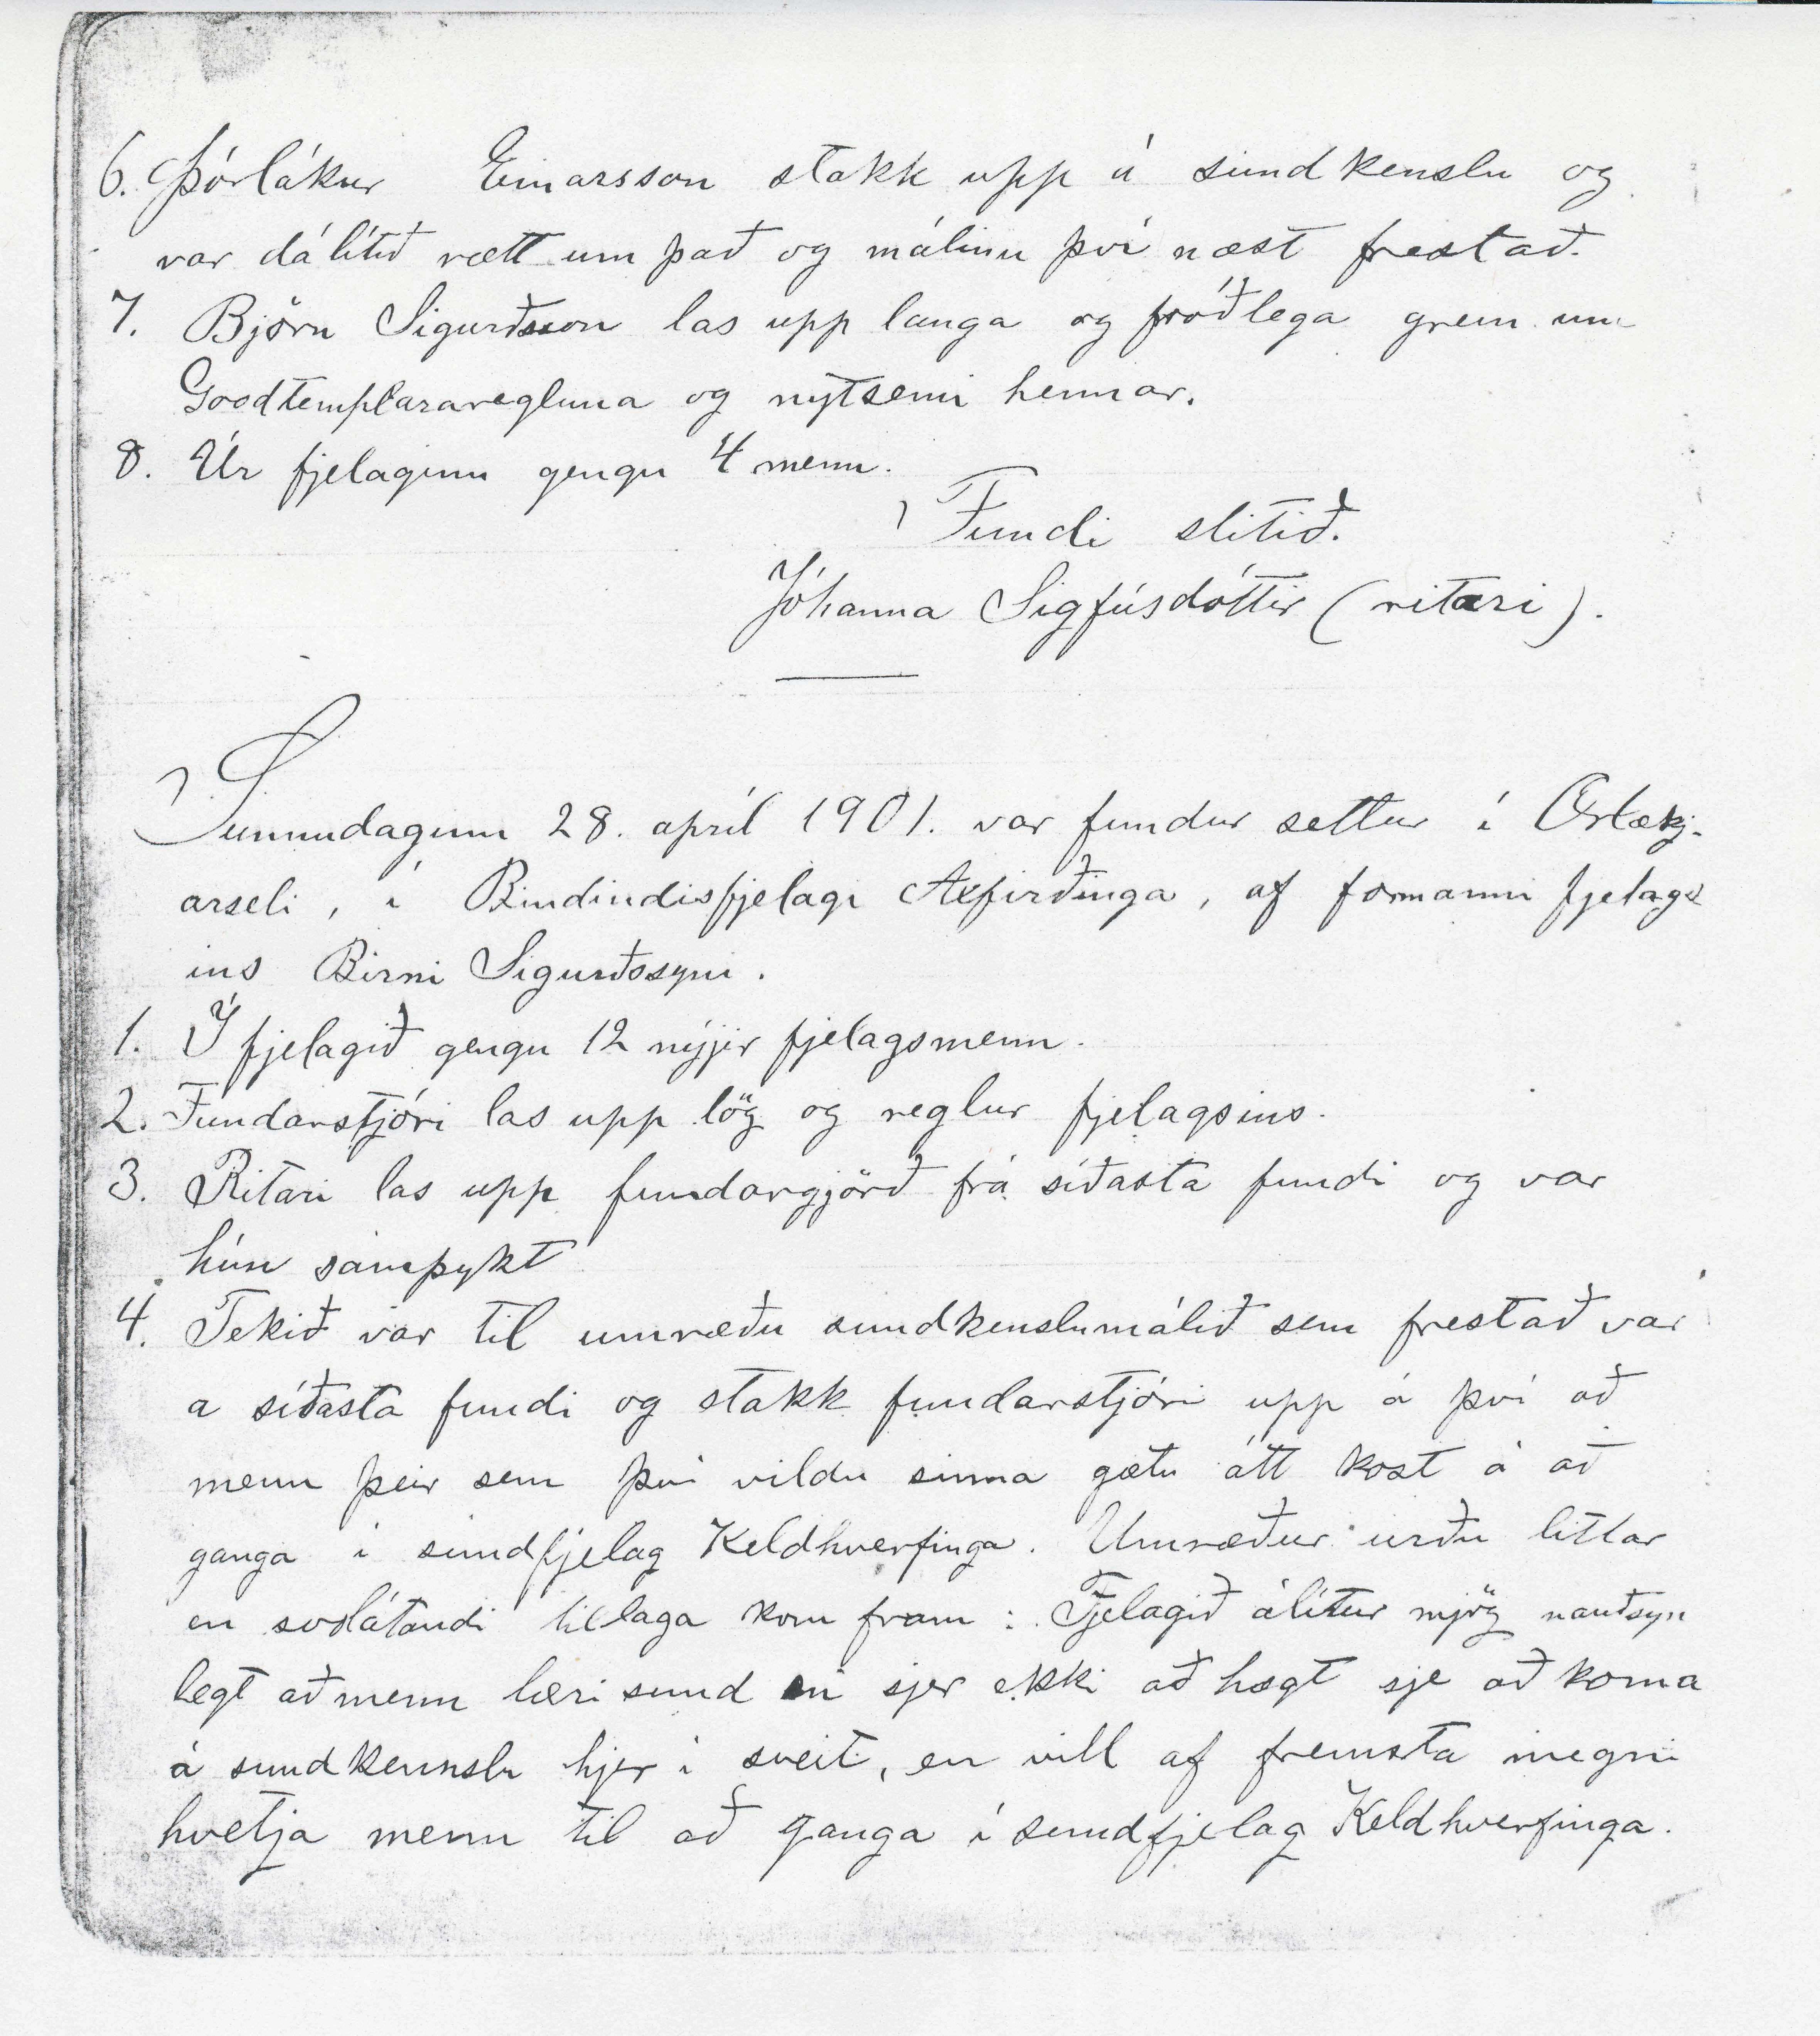 6. Þórlákur Einarsson stakk upp á sundkenslu og
var dálítið rætt um það og málinu því næst frestað.
7. Björn Sigurðsson las upp langa og fróðlega grein um
Goodtemplararegluna og nytsemi hennar.
8. Úr fjelaginu gengu 4 menn.
Fundi slitið.
Jóhanna Sigfúsdóttir (ritari).
Sunnudaginn 28. apríl 1901. var fundur settur í Ærlækj-
arseli, í Bindindisfjelagi Axfirðinga, af formanni fjelags
ins Birni Sigurðssyni.
1. Í fjelagið gengu 12 nýjir fjelagsmenn.
2. Fundarstjóri las upp lög og reglur fjelagsins.
3. Ritari las upp fundargjörð frá síðasta fundi og var
hún samþykt
4. Tekið var til umræðu sundkenslumálið sem frestað var
a síðasta fundi og stakk fundarstjóri upp á því að
menn þeir sem því vildu sinna gætu átt kost á að
ganga í sundfjelag Keldhverfinga. Umræður urðu littlar
en svolátandi tillaga kom fram: Fjelagið álítur mjög nauðsyn
legt að menn læri sund en sjer ekki að hægt sje að koma
á sundkennslu hjer í sveit, en vill af fremsta megni
hvetja menn til að ganga í sundfjelag Keldhverfinga.